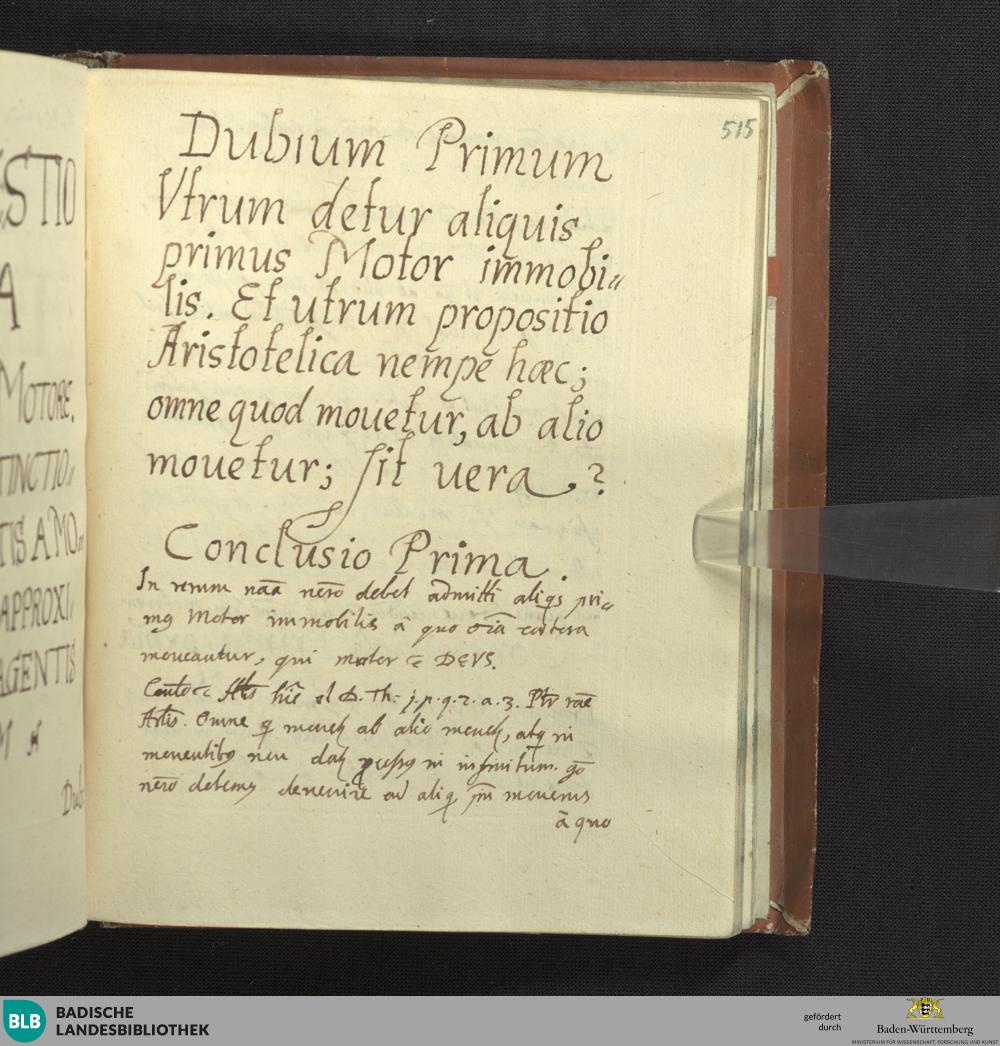 STIO
A
MOTORE,
TINCTIO〃
TIS A MO〃
APPROXI〃
AGENTIS
M
Dub
515
Dubium Primum
Vtrum detur aliquis
primus Motor immobi〃
lis. Et utrum propositio
Aristotelica nempè hæc;
omne quod mouetur, ab alio
mouetur; sit uera.?
Conclusio Prima.
In rerum nãã nẽrõ debet admitti aliqs pri〃
mꝰ Motor immobilis à quo oĩã cætera
moueantur, qui motor ẽ DEVS.
D. Th: j. p. q. 2. a. 3.
Omne ab alio atq in
in infinitum. gõ
nẽrõ debemꝰ deuenire ad aliq mouens
à quo
BLB BADISCHE
LANDESBIBLIOTHEK
gefördert
durch
Baden-Württemberg
MINISTERIUM FÜR WISSENSCHAFT, FORSCHUNG UND KUNST